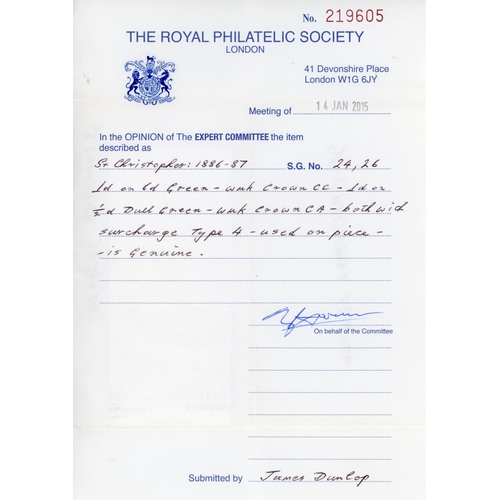 No. 219605
THE ROYAL PHILATELIC SOCIETY
LONDON
41 Devonshire Place
London W1G 6JY
Meeting of 14 JAN 2015
In the OPINION of The EXPERT COMMITTEE the item
described as
St Christopher: 1886-87 S.G. No. 24, 26
1d on 6d Green - wmk Crown CC - 1d on
½d Dull Green - wmk Crown CA - both with
surcharge Type 4 - used on piece -
- is Genuine.
On behalf of the Committee
Submitted by James Dunlop